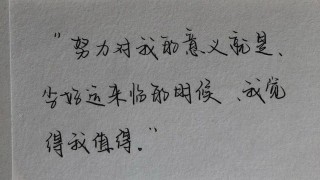 “努力对我的意义就是、
当好运来临的时候、我觉
得我值得。”